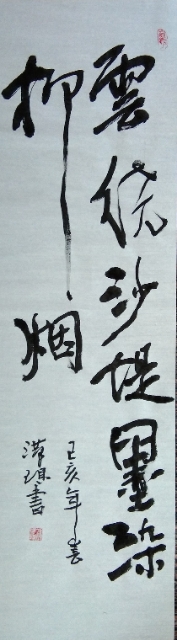 雲繞沙堤墨染
柳烟
己亥年春
書